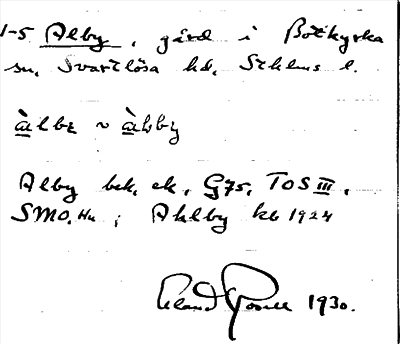 1-5 Alby, gård i Botkyrka
sn, Svartlösa hd, Sthlms l.
àlbɛ ~ àlby
Alby bek, ek, G75, TOS III,
SMO, Hu; Ahlby kb 1924
1930.